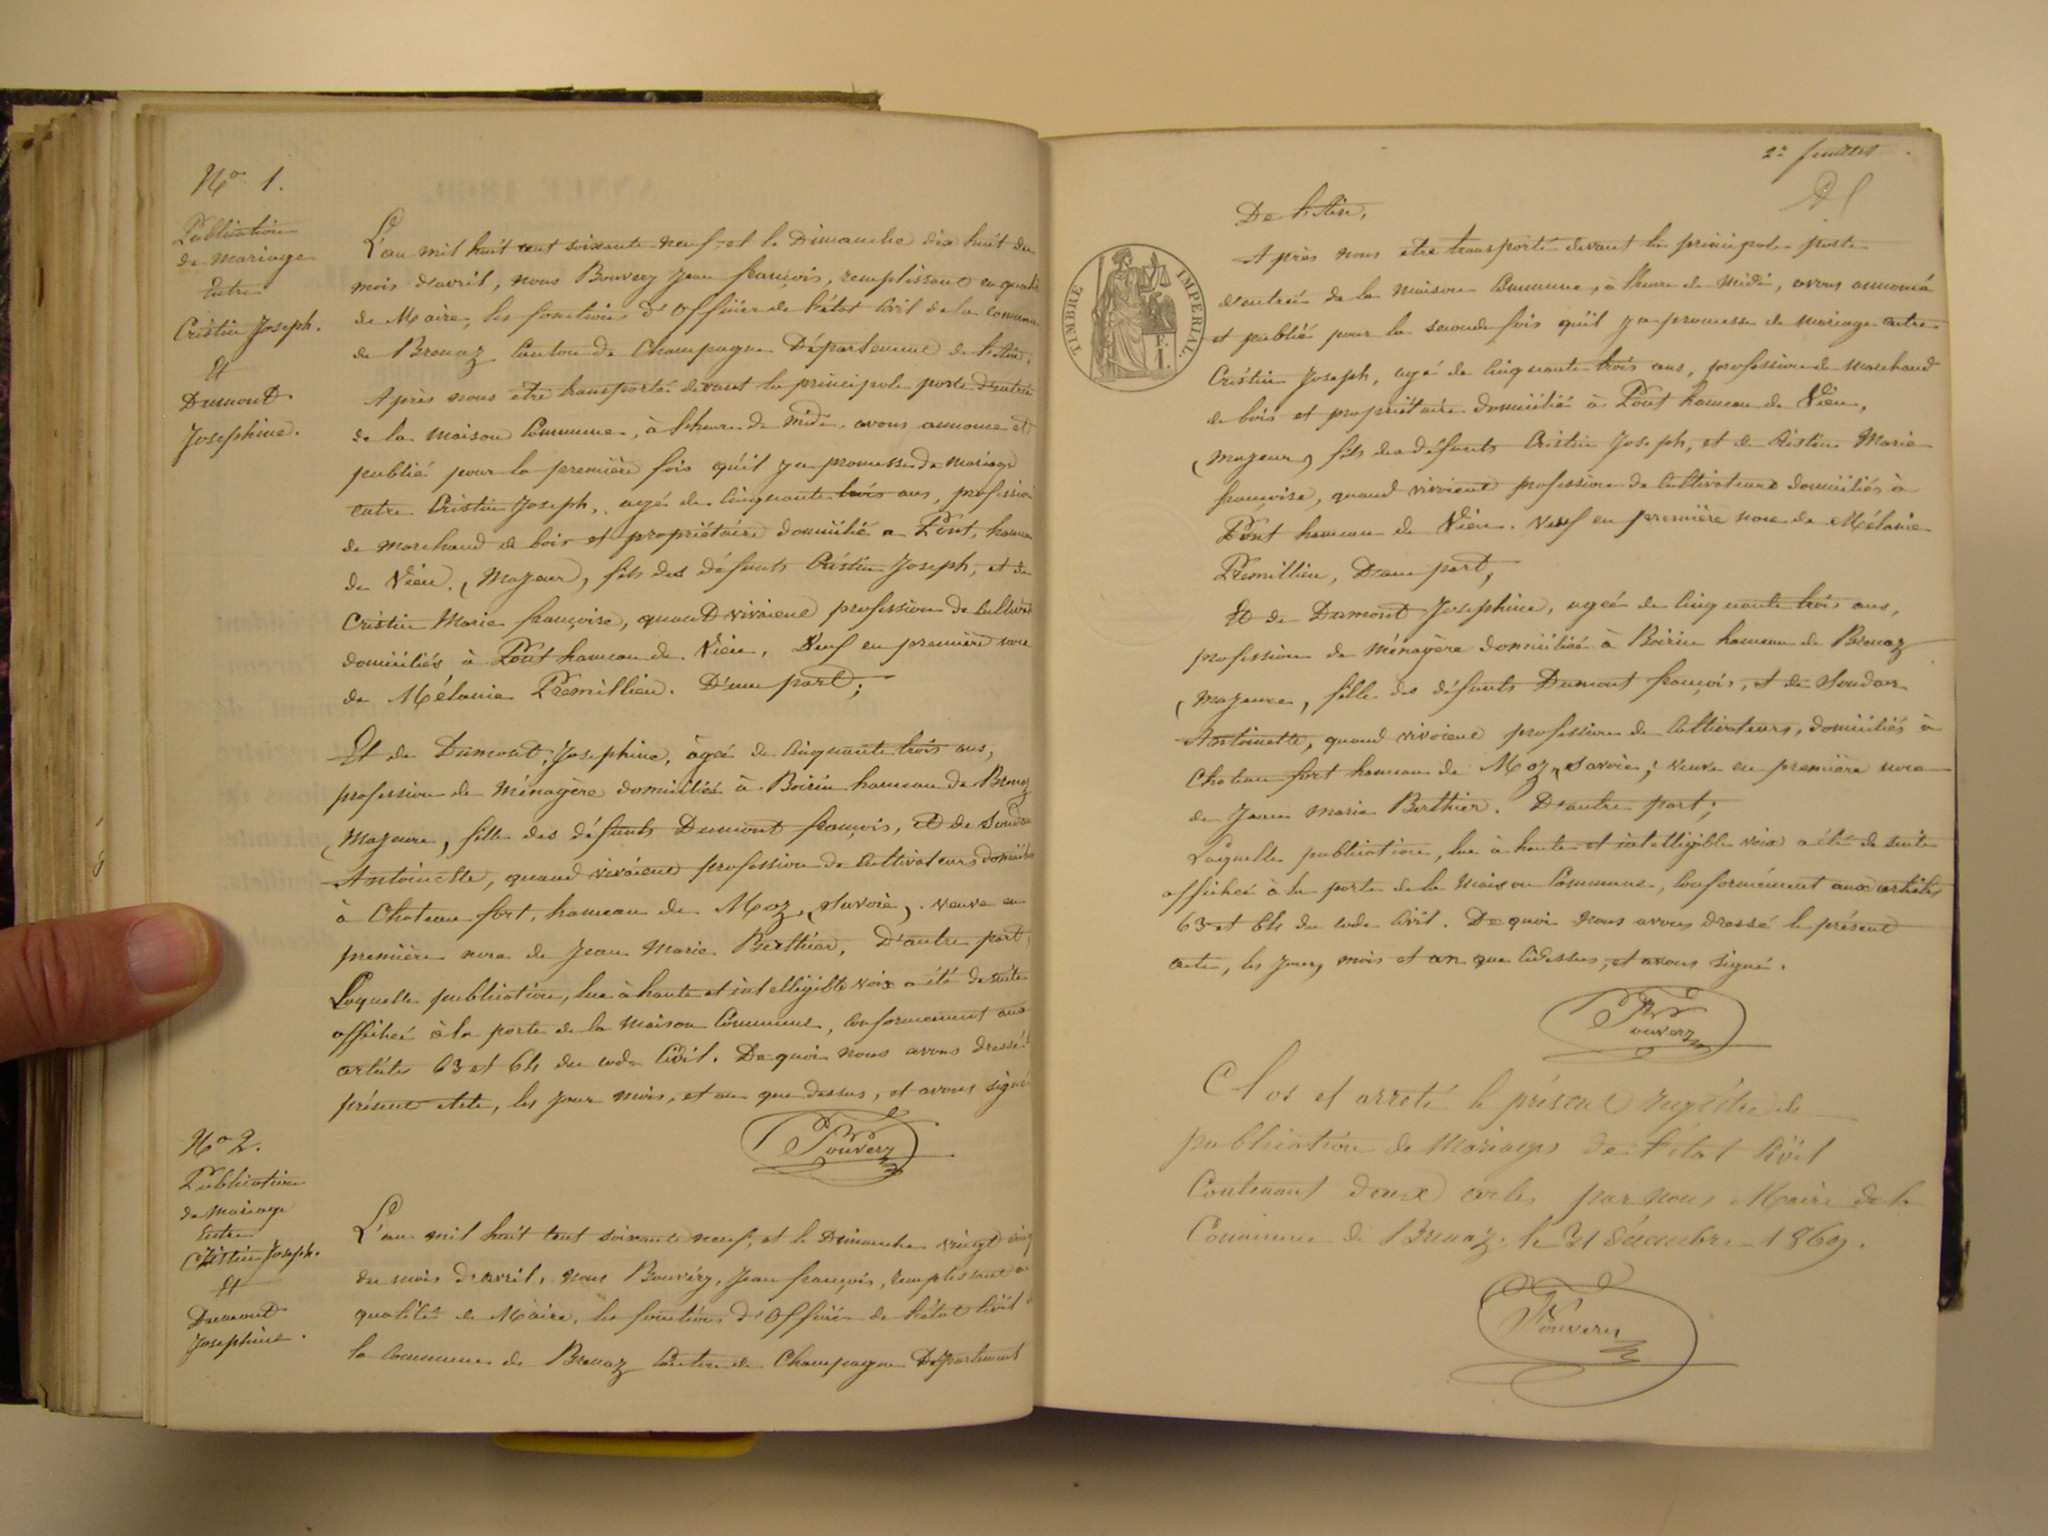 N° 1.
Publication
de mariage
Entre
Cristin Joseph.
Et
Dumont
Josephine.
L'an mil huit cent soixante neuf, et le Dimanche dix huit du
mois d'avril, nous Bouvery Jean françois, remplissant en qualité
de Maire, les fonctions d'Officier de l'état Civil de la commune
de Brenaz Canton de Champagne Département de l'Ain,
Après nous etre transporté devant la principale porte d'entrée
de la maison Commune, à l'heure de midi, avons annoncé et
publié pour la première fois qu'il y a promesse de mariage
entre Cristin Joseph, agé de cinquante trois ans, profession
de marchand de bois et propriétaire domicilié a Pont, hameau
de Vieu. (Majeur), fils des défunts Cristin Joseph, et de
Cristin Marie françoise, quand vivoient profession de cultivat
domiciliés à Pont hameau de Vieu. Veuf en première noce
de Mélanie Premillieu. D'une part;
Et de Dumont, Josephine, àgée de cinquante trois ans,
profession de ménagère domiciliée à Boirin hameau de Brenaz
(Majeure, fille des défunts Dumont françois, et de Soudan
Antoinette, quand vivoient profession de Cultivateurs domiciliés
à Chateau fort, hameau de Moz, (Savoie), veuve en
première noce de Jean Marie Berthier, D'autre part,
Laquelle publication, lue à haute et intelligible voix a été de suite
affichée à la porte de la maison Commune, conformement aux
articles 63 et 64 du code Civil. De quoi nous avons dressé le
présent acte, les jour mois, et an que dessus, et avons signé
Bouvery
N° 2.
Publication
de mariage
Entre
Cristin Joseph.
Et
Dumont
Josephine.
L'an mil huit cent soixante neuf, et le Dimanche vingt cinq
du mois d'avril, nous Bouvéry, Jean françois, remplissant en
qualité de Maire, les fonctions d'Officier de l'état Civil
la commune de Brenaz Canton de Champagne Département
2e feuillet
De l'Ain,
Après nous etre transporté devant la principale porte
d'entrée de la maison Commune, à l'heure de midi, avons annoncé
et publié pour la seconde fois qu'il y a promesse de mariage entre
Cristin Joseph, agé de cinquante trois ans, profession de marchand
de bois et propriétaire domicilié à Pont hameau de Vieu,
(majeur) fils des défunts Cristin Joseph, et de Cristin Marie
françoise, quand vivoient profession de Cultivateurs domiciliés à
Pont hameau de Vieu. Veuf en première noce de Mélanie
Premillieu, D'une part;
Et de Dumont Josephine, agée de cinquante trois ans,
profession de ménagère domiciliée à Boirin hameau de Brenaz
(Majeure, fille des défunts Dumont françois, et de Soudan
Antoinette, quand vivoient profession de Cultivateurs, domiciliés à
Chateau fort hameau de Moz, Savoie; veuve en première noce
de Jean Marie Berthier. D'autre part;
Laquelle publication, lue à haute et intelligible voix a été de suite
affichée à la porte de la Maison Commune, conformément aux articles
63 et 64 du code Civil. De quoi nous avons dressé le présent
acte, les jour, mois et an que cidessus, et avons signé.
Bouvery
Clos et arreté le présent registre de
publication de Mariages de l'état Civil
Contenant deux actes par nous Maire de la
Commune de Brenaz. le 31 décembre 1869.
Bouvery
TIMBRE IMPÉRIAL.